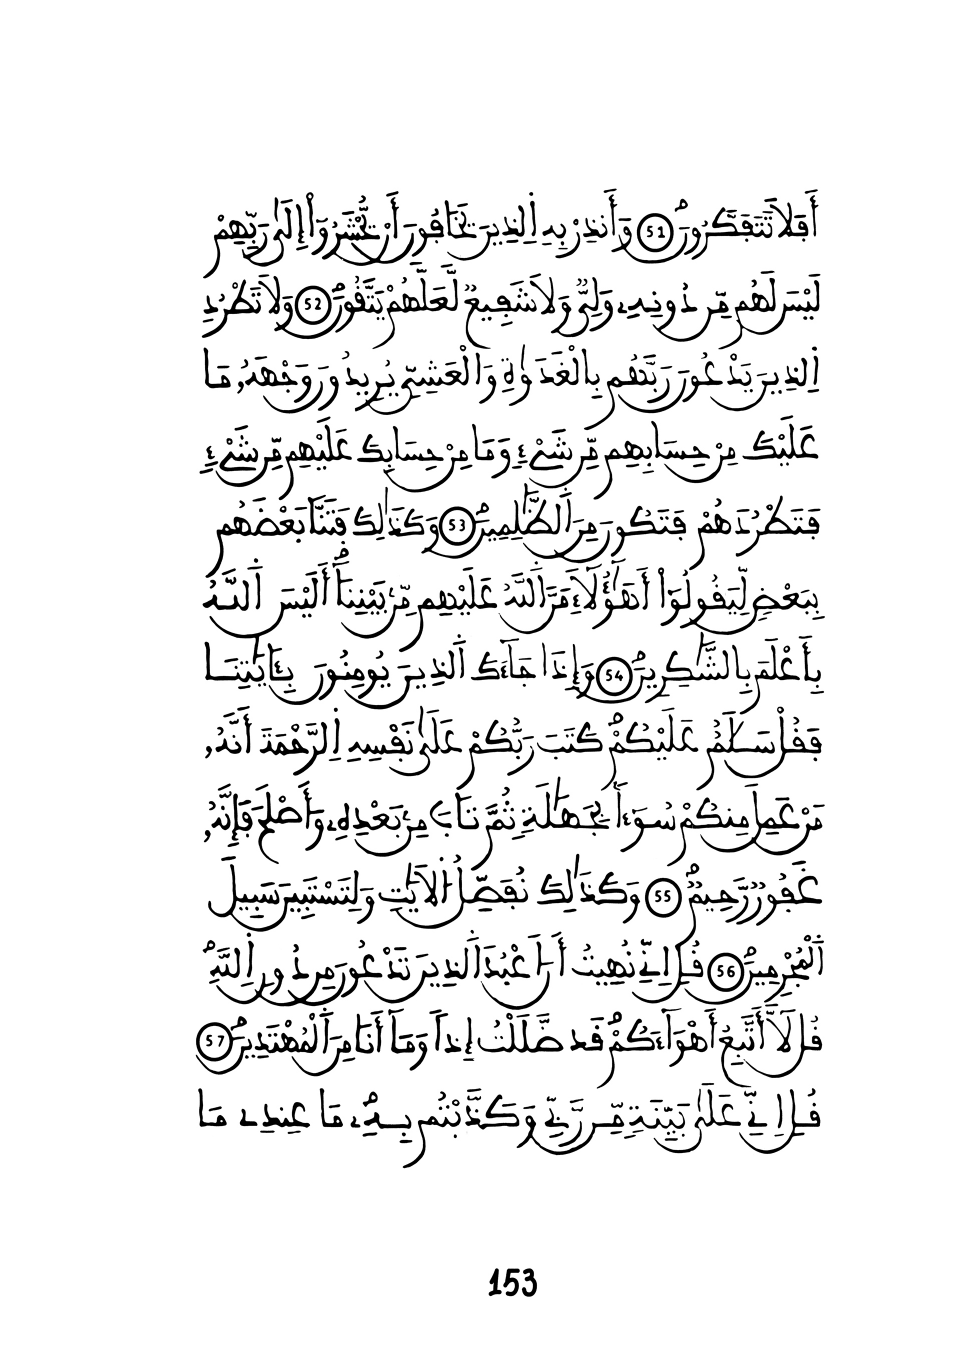 أَفَلَا تَتَفَكَّرُونَ 51 وَأَنذِرْ بِهِ اِلذِينَ يَخَافُونَ أَنْ يُّحْشَرُوٓاْ إِلَىٰ رَبِّهِمْ
لَيْسَ لَهُم مِّن دُونِهِۦ وَلِيٌّ وَلَا شَفِيعٌ لَّعَلَّهُمْ يَتَّقُونَ 52 وَلَا تَطْرُدِ
اِلذِينَ يَدْعُونَ رَبَّهُم بِالْغَدَوٰةِ وَالْعَشِيِّ يُرِيدُونَ وَجْهَهُۥ مَا
عَلَيْكَ مِنْ حِسَابِهِم مِّن شَےْءٖ وَمَا مِنْ حِسَابِكَ عَلَيْهِم مِّن شَےْءٖ
فَتَطْرُدَهُمْ فَتَكُونَ مِنَ اَلظَّٰلِمِينَ 53 وَكَذَٰلِكَ فَتَنَّا بَعْضَهُم
بِبَعْضٖ لِّيَقُولُوٓاْ أَهَٰٓؤُلَآءِ مَنَّ اَللَّهُ عَلَيْهِم مِّنۢ بَيْنِنَآ أَلَيْسَ اَللَّهُ
بِأَعْلَمَ بِالشَّٰكِرِينَ 54 وَإِذَا جَآءَكَ اَلذِينَ يُومِنُونَ بِـَٔايَٰتِنَا
فَقُلْ سَلَٰمٌ عَلَيْكُمْ كَتَبَ رَبُّكُمْ عَلَىٰ نَفْسِهِ اِلرَّحْمَةَ أَنَّهُۥ
مَنْ عَمِلَ مِنكُمْ سُوٓءاَۢ بِجَهَٰلَةٖ ثُمَّ تَابَ مِنۢ بَعْدِهِۦ وَأَصْلَحَ فَإِنَّهُۥ
غَفُورٌ رَّحِيمٌ 55 وَكَذَٰلِكَ نُفَصِّلُ اُلْأٓيَٰتِ وَلِتَسْتَبِينَ سَبِيلَ
اَلْمُجْرِمِينَ 56 قُلِ اِنِّے نُهِيتُ أَنَ اَعْبُدَ اَلذِينَ تَدْعُونَ مِن دُونِ اِللَّهِ
قُل لَّآ أَتَّبِعُ أَهْوَآءَكُمْ قَد ضَّلَلْتُ إِذاٗ وَمَآ أَنَا مِنَ اَلْمُهْتَدِينَ 57
قُلِ اِنِّے عَلَىٰ بَيِّنَةٖ مِّن رَّبِّے وَكَذَّبْتُم بِهِۦ مَا عِندِے مَا
153